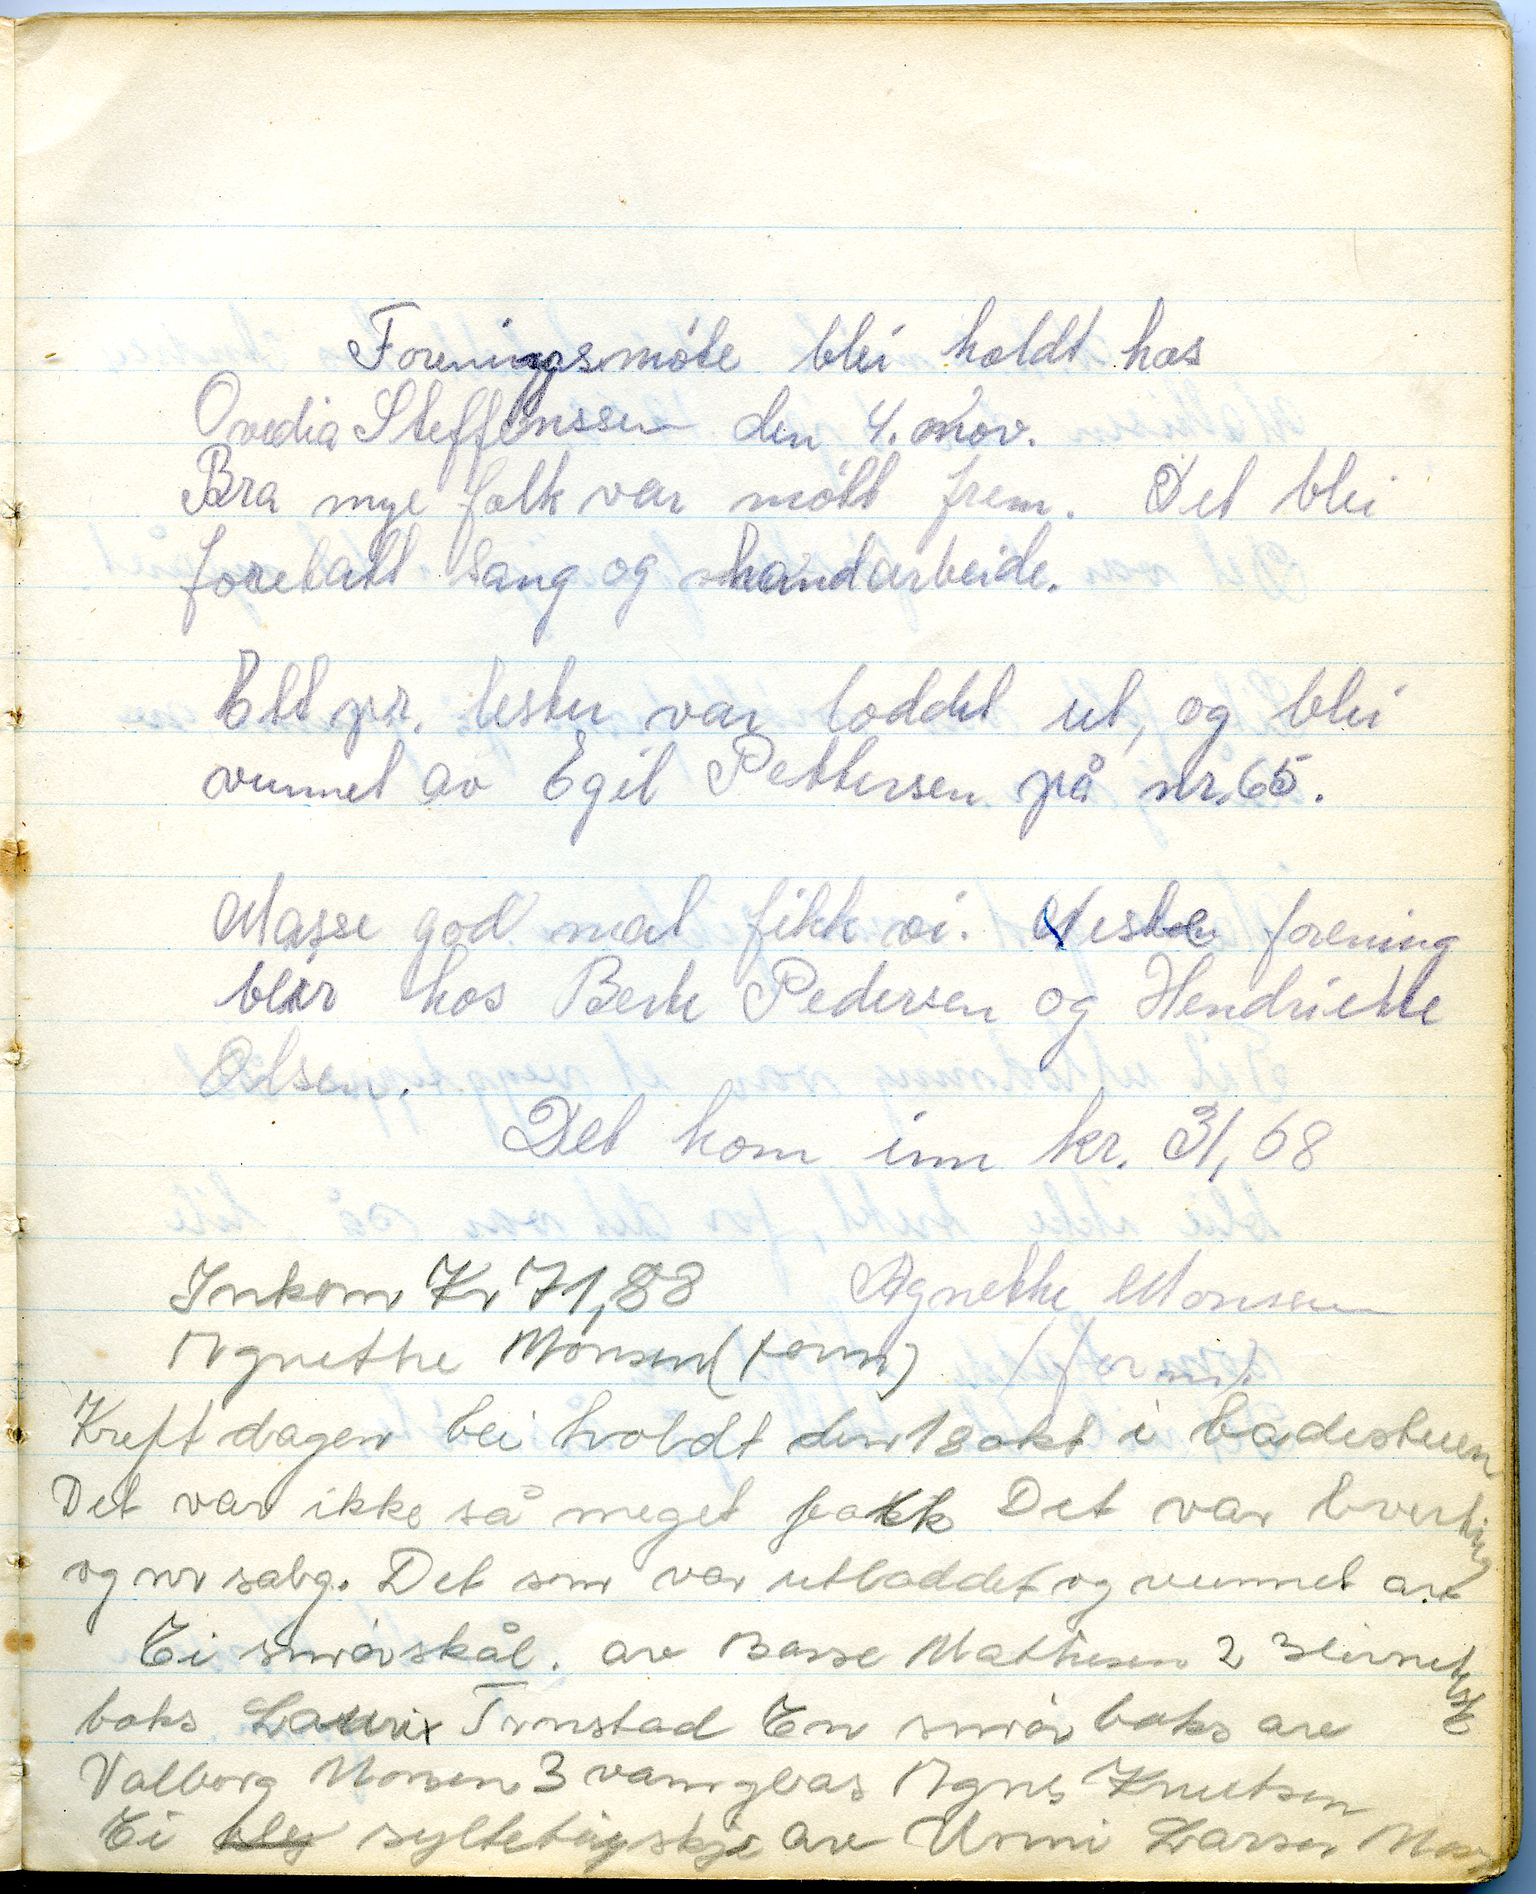 Foreningsmöte blei holdt hos
Ovedia Steffensen den 4. nov.
Bra mye folk var mött frem. Det blei
foretatt sang og handarbeide.
Ett pr. lester var loddet ut, og blei
vunnet av Egil Pettersen på nr. 65.
Masse god mat fikk vi. Neste forening
blir hos Berte Pedersen og Hendriette
Olsen.
Det kom inn kr. 31,68
Agnethe Monssen
(form).
Inkom Kr 71,88
Agnethe Monsen (form)
Kreftdagen blei holdt den 18 okt i badestuen
Det var ikke så meget folk Det var bverting
og nr salg. Det som var utloddet og vunnet av
Ei smörskål. av Basse Mathesen 2
boks Lauri Trnstad En smör boks ave
Valborg Monsen 3 vanglas Agnes Knutsen
Ei syltetöyskje av Unni Larsen